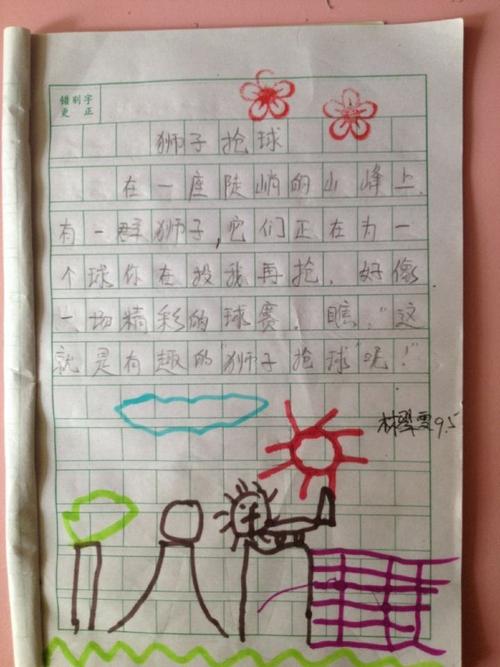 错别字
更 正
狮子抢球
在一座陡峭的山峰上,
有一群狮子,它们正在为一
个球你在投我再抢,好像
一场精彩的球赛,瞧,“这
就是有趣的“狮子抢球”呢!”
林翠雯9.5